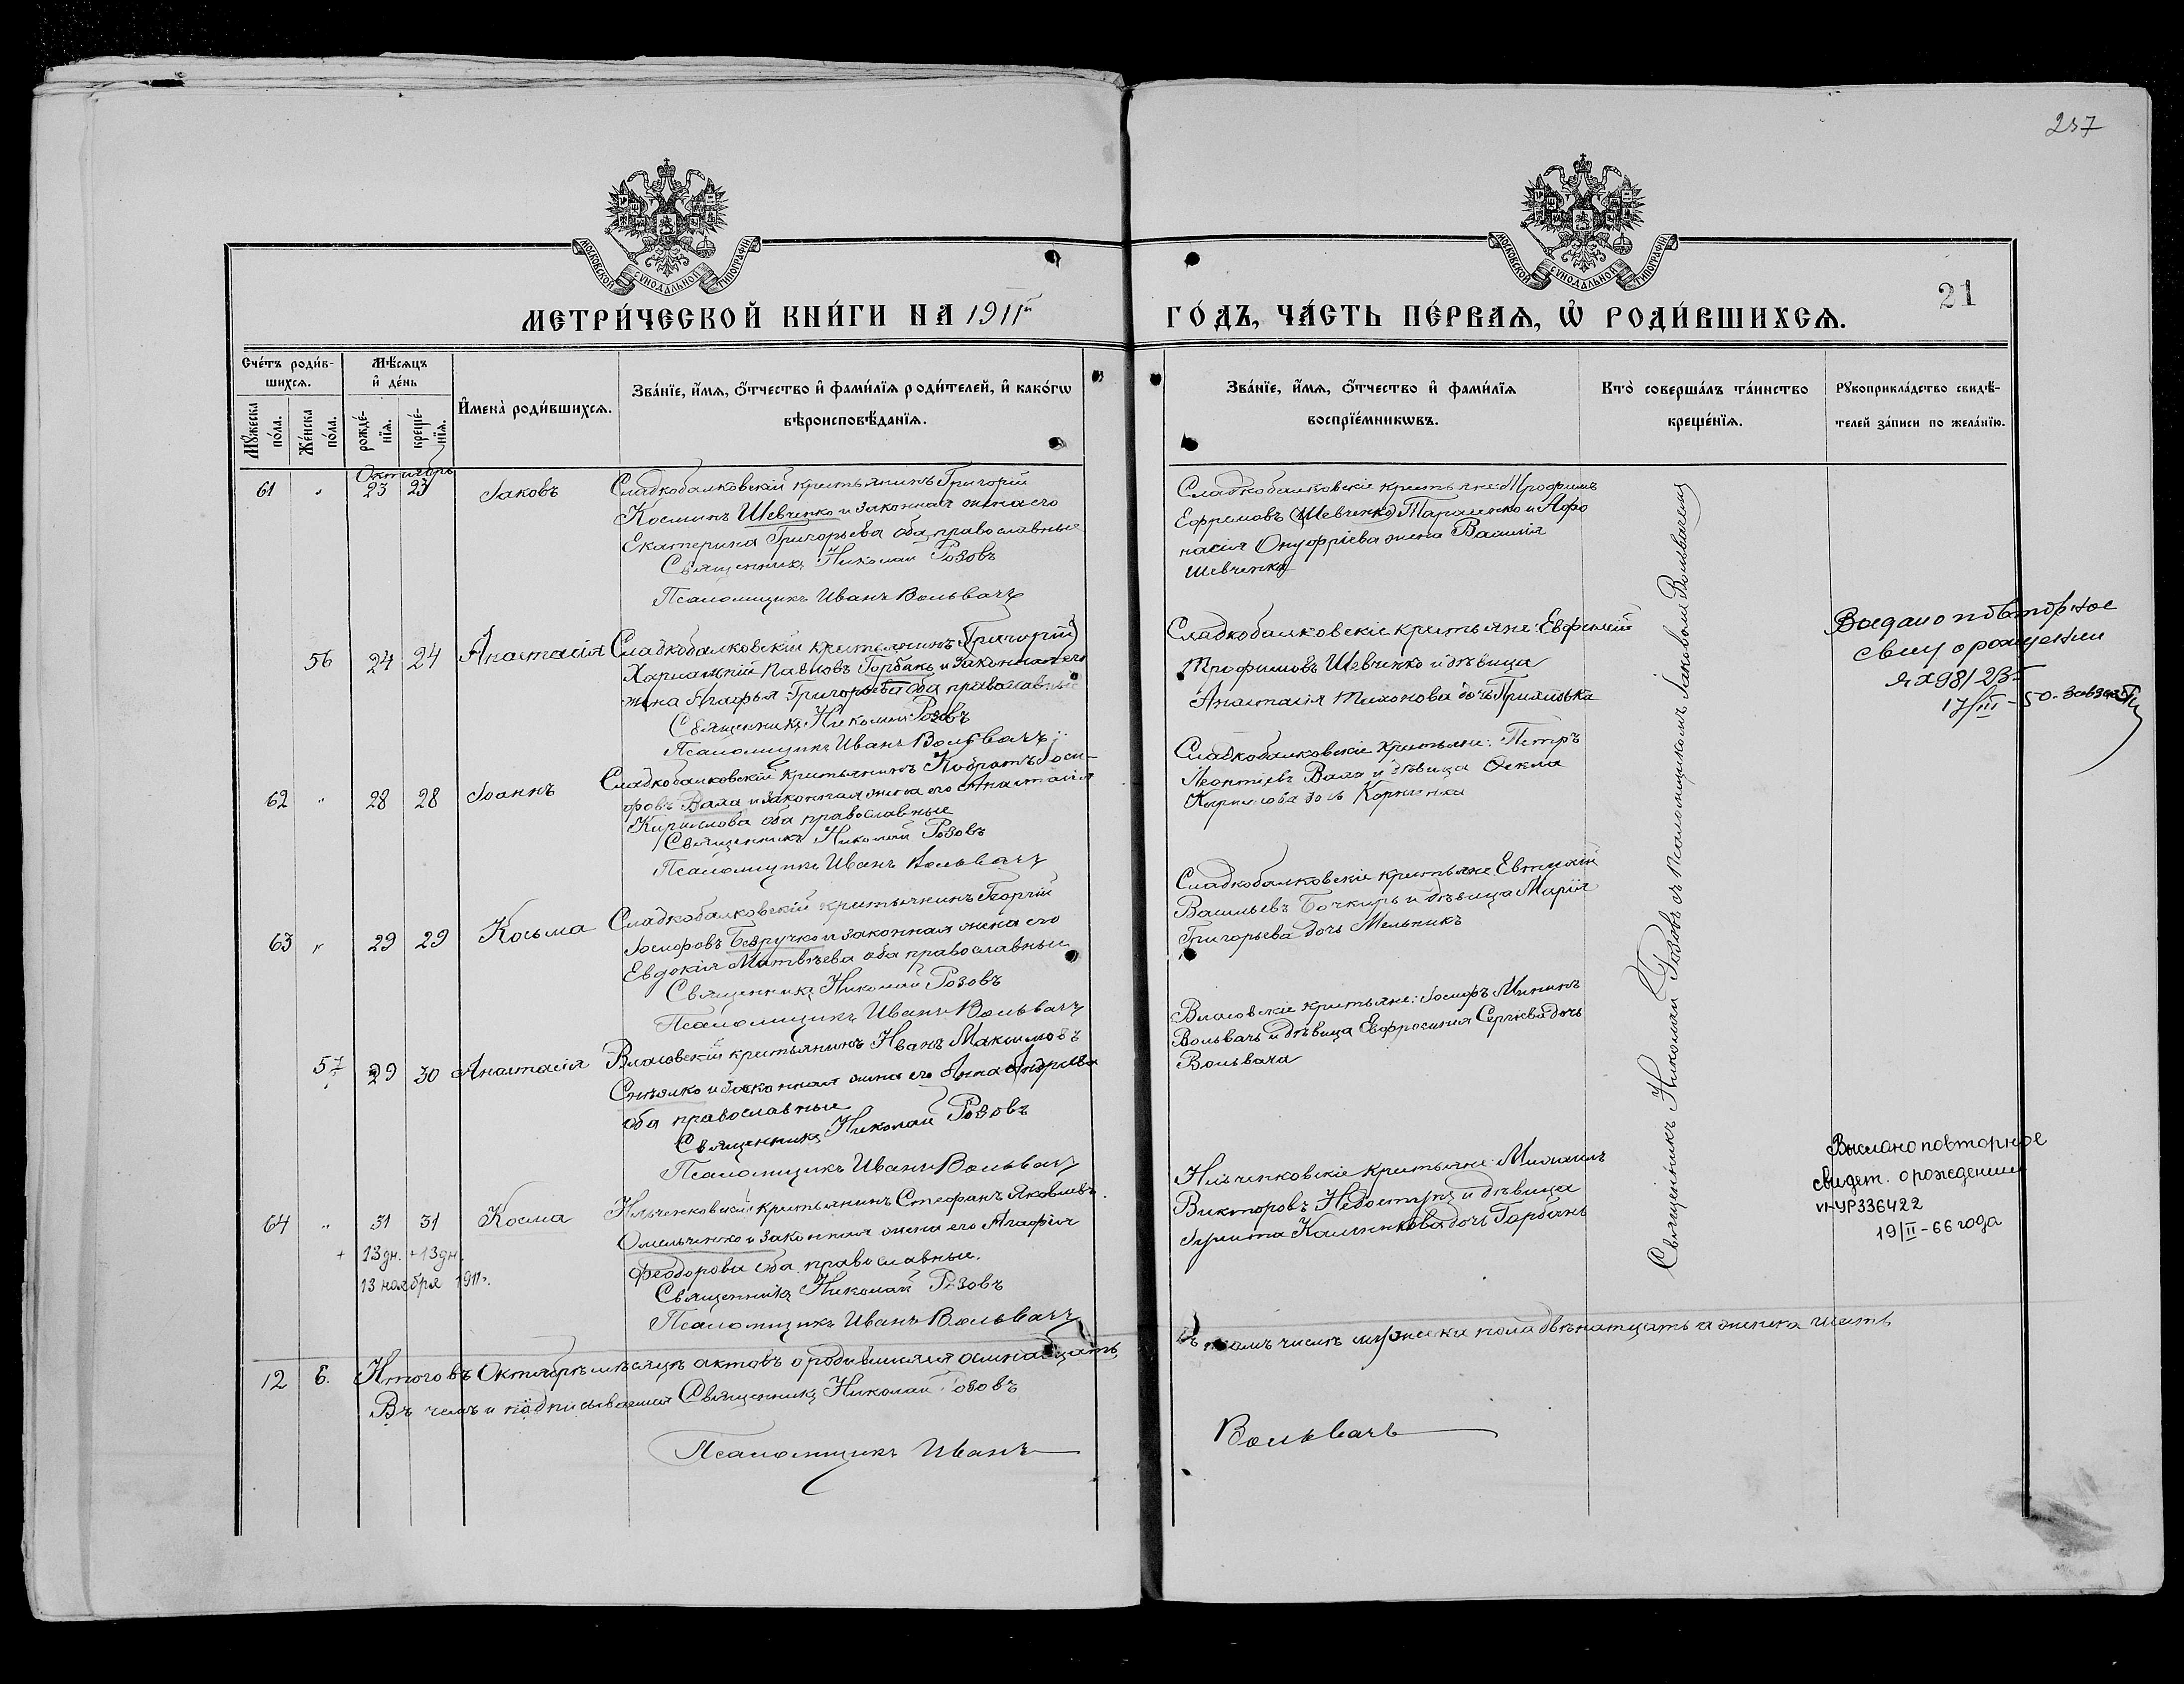 237
МОСКОВСКОЙ СѴНОДАЛЬНОЙ ТИПОГРАФІИ
МОСКОВСКОЙ СѴНОДАЛЬНОЙ ТИПОГРАФІИ
МЕТРИ́ЧЕСКОЙ КНИ́ГИ НА 1911й
ГО́ДЪ, ЧА́СТЬ ПЕ́РВАѦ, Ѽ РОДИ́ВШИХСѦ.
21
Сче́тъ роди́в-
шихсѧ.
Мꙋ́жеска по́ла.
Же́нска по́ла.
Мѣ́сѧцъ
и҆ де́нь
рожде́-нїѧ.
креще́-нїѧ.
И҆мена̀ роди́вшихсѧ.
Зва́нїе, и҆́мѧ, ѻ҆́тчество и҆ фами́лїѧ роди́телей, и҆ како́гѡ
вѣроисповѣ́данїѧ.
Зва́нїе, и҆́мѧ, ѻ҆́тчество и҆ фами́лїѧ
воспрїе́мникѡвъ.
Кто̀ соверша́лъ та́инство
креще́нїѧ.
Рꙋкоприкла́дство свидѣ́-
телей за́писи по жела́нїю.
Октябрь
61 " 23 23 Іаковъ
Сладкобалковскій крестьянинъ Григорій
Косминъ Шевченко и законная жена его
Екатерина Григорьева оба православные
Священникъ Николай Розовъ
Псаломщикъ Иванъ Вольвачъ
Сладкобалковскіе крестьяне: Трофимъ
Ефремовъ (Шевченко) Тараненко и Афо
насія Онуфріева жена Василія
Шевченка
56 24 24 Анастасія
Сладкобалковскій крестьянинъ (Григорій)
Харлампій Павловъ Горбань и законная его
жена Агафья Григорьева оба православные
Священникъ Николай Розовъ
Псаломщикъ Иванъ Вольвачъ
Сладкобалковскіе крестьяне: Евфимій
Трофимовъ Шевченко и дѣвица
Анастасія Тихонова дочь
Выдано повторное
свид о рождении
17/III - 50.
62 " 28 28 Іоаннъ
Сладкобалковскій крестьянинъ Кодратъ Іоси-
фовъ Вала и законная жена его Анастасія
Кириллова оба православные
Священникъ Николай Розовъ
Псаломщикъ Иванъ Вольвачъ
Сладкобалковскіе крестьяне: Петръ
Леонтіевъ Вала и дѣвица Ѳекла
Кириллова дочь Корниенка
63 " 29 29 Косьма
Сладкобалковскій крестьянинъ Георгій
Іосифовъ Безручко и законная жена его
Евдокія Матвѣева оба православные
Священникъ Николай Розовъ
Псаломщикъ Иванъ Вольвачъ
Сладкобалковскіе крестьяне Евтихій
Васильевъ Бочкирь и дѣвица Марія
Григорьева дочь Мельникъ
57 29 30 Анастасія
Власовскій крестьянинъ Иванъ Максимовъ
и законная жена его Анна Андреева
оба православные
Священникъ Николай Розовъ
Псаломщикъ Иванъ Вольвачъ
Власовскіе крестьяне: Іосифъ Мининъ
Вольвачъ и дѣвица Евфросинія Сергѣева дочь
Вольвача
64 " 31 31 Косма
+ 13 дн. + 13 дн.
13 ноября 1911 г.
Ильченковскій крестьянинъ Стефанъ Яковлевъ
Омельченко и законная жена его Агафія
Ѳеодорова оба православные.
Священникъ Николай Розовъ
Псаломщикъ Иванъ Вольвачъ
Ильченковскіе крестьяне: Михаилъ
Викторовъ Недоступъ и дѣвица
Калинникова дочь Горбань
Выслано повторное
свидет. о рождении
VI-УР 336422
19/II - 66 года
Священникъ Николай Розовъ съ псаломщикомъ Іаковомъ Вольвачемъ
12 6. Итого въ Октябрѣ мѣсяцѣ актовъ о родившихся осмнадцать
въ томъ числѣ мужеска пола двѣнатцать а женска шесть
Въ чемъ и подписываемся Священникъ Николай Розовъ
Псаломщикъ Иванъ
Вольвачъ